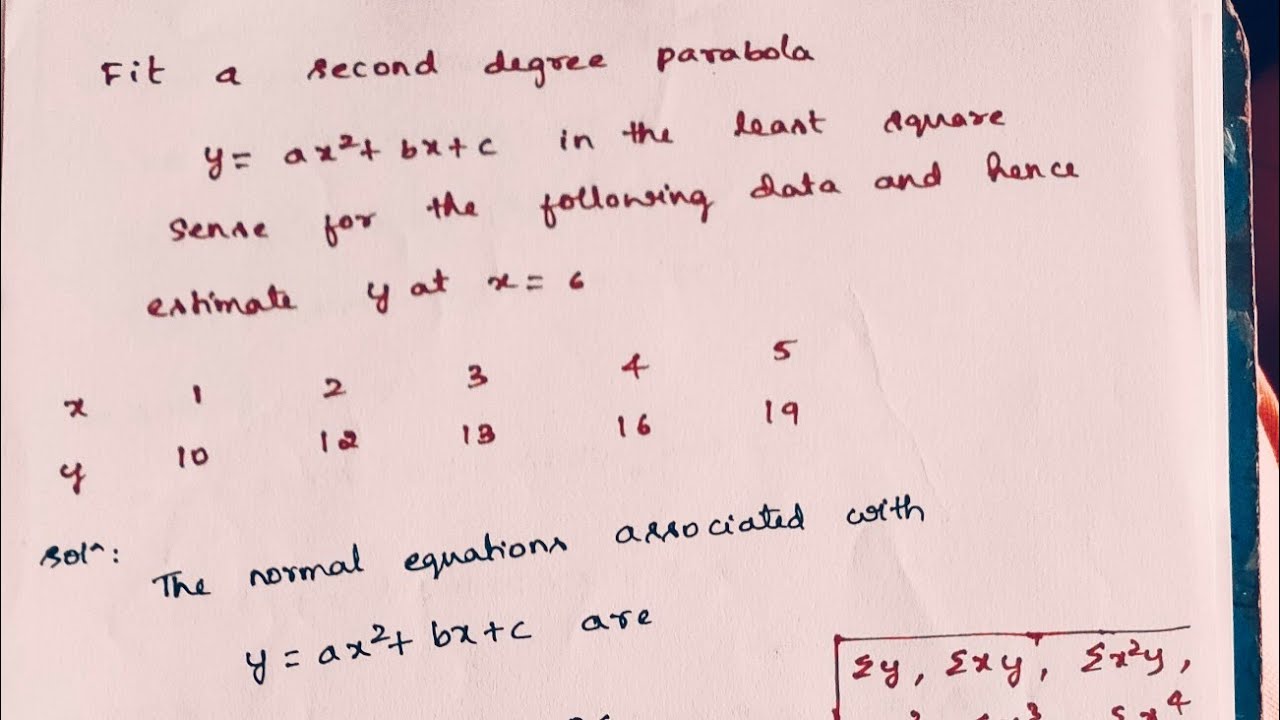 Fit a second degree parabola
y = ax²+ bx+c in the least square
sense for the following data and hence
estimate y at x = 6
x 1 2 3 4 5
y 10 12 13 16 19
Solⁿ:
The normal equations associated with
y = ax²+ bx+c are
Σy, Σxy, Σx²y,
Σx⁴